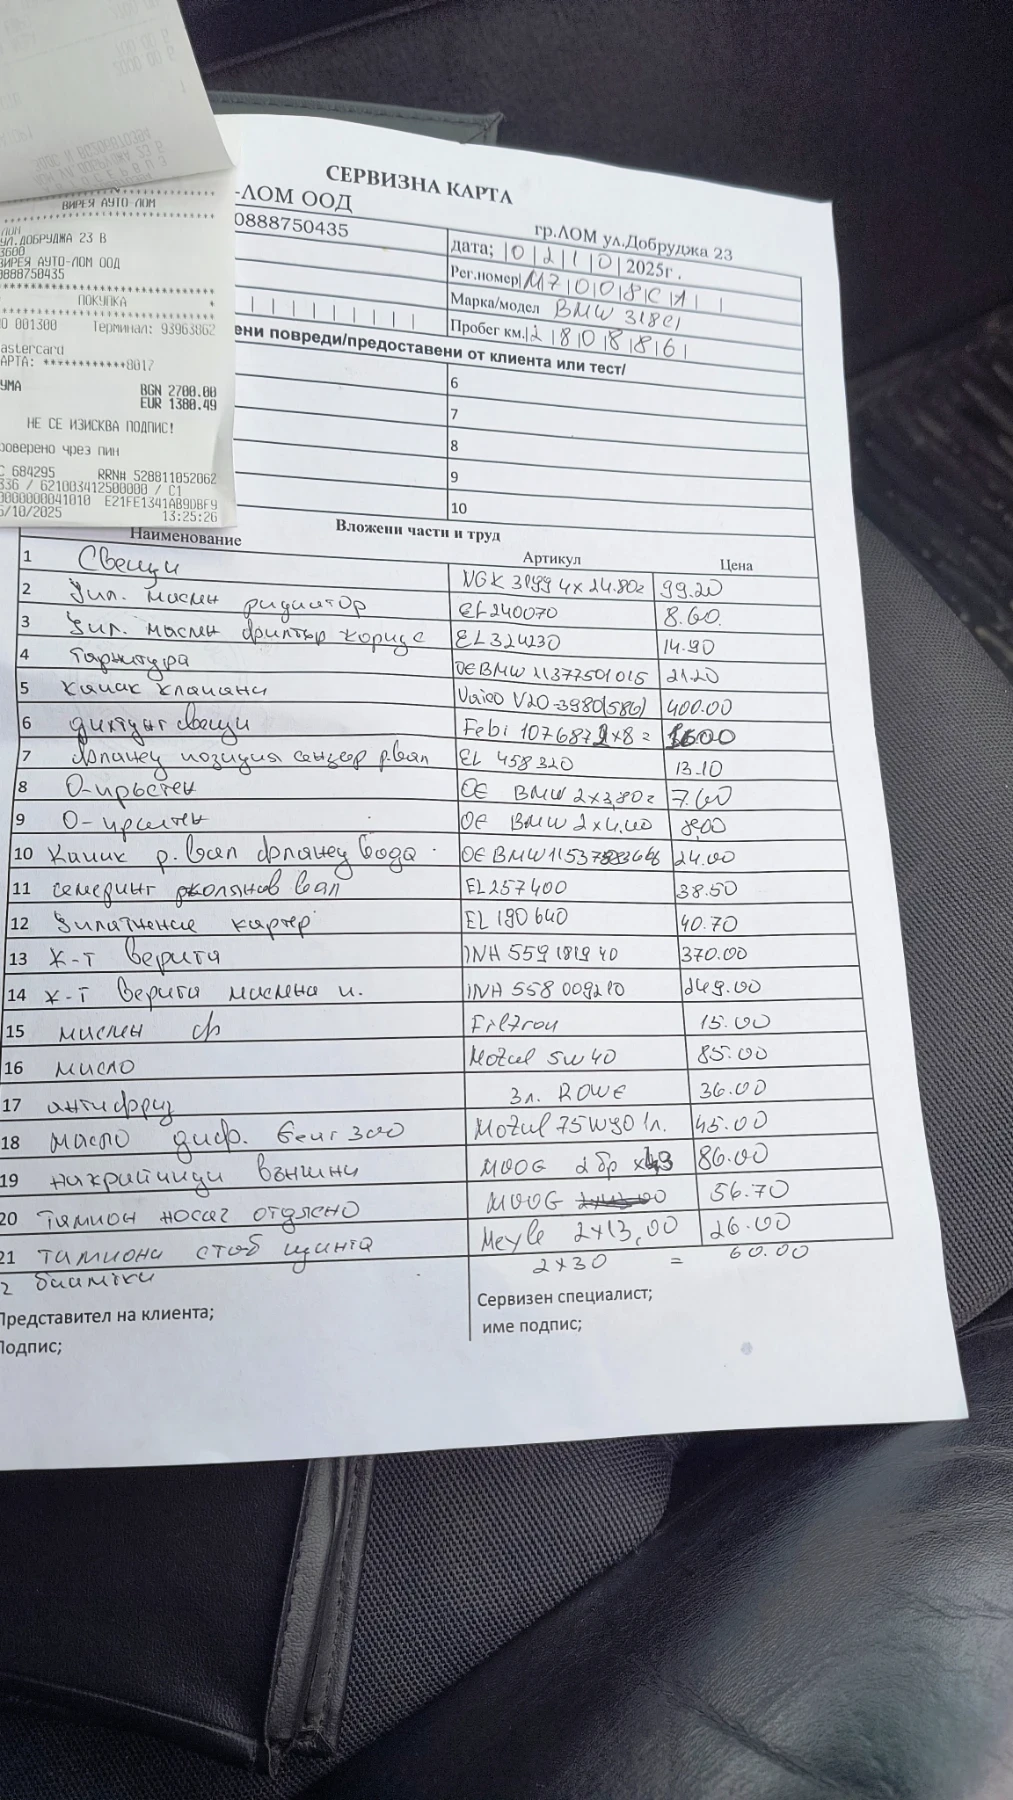 ВИРЕЯ АУТО-ЛОМ
ЛОМ
УЛ.ДОБРУДЖА 23 В
3600
ВИРЕЯ АУТО-ЛОМ ООД
0888750435
ПОКУПКА
001300 Терминал: 93963862
astercard
АРТА: ************8017
УМА BGN 2700.00
EUR 1380.49
НЕ СЕ ИЗИСКВА ПОДПИС!
роверено чрез пин
C 684295 RRN# 528811052062
336 / 621003412500000 / C1
0000000041010 E21FE1341AB9DBF9
/10/2025 13:25:26
СЕРВИЗНА КАРТА
-ЛОМ ООД
0888750435 гр.ЛОМ ул.Добруджа 23
дата; |0|2|1|0|2025г.
Рег.номер| M7|0|0|8|C|A| |
Марка/модел BMW 318ci
Пробег км.|2|8|0|8|8|6|
ени повреди/предоставени от клиента или тест/
6
7
8
9
10
Вложени части и труд
Наименование Артикул Цена
1 Свещи NGK 3199 4x24.80= 99.20
2 Упл. маслен радиатор EL240070 8.60.
3 Упл. маслен филтър корпус EL324230 14.90
4 Гарнитура OE BMW 11377501015 21.20
5 капак клапани Vaico V20-3980(586) 400.00
6 дихтунг свещи Febi 107687 2x8=
7 фланец позиция сензор р.вал EL 458320 13.10
8 О-пръстен OE BMW 2x3,80= 7.60
9 О-пръстен OE BMW 2x4.40
10 Капак р.вал фланец вода OE BMW 24.00
11 семеринг колянов вал EL257400 38.50
12 Уплътнение картер EL 190640 40.70
13 к-т верига INA 559 1819 40 370.00
14 к-т верига маслена п. INA 558 009210 249.00
15 маслен ф Filtron 15.00
16 масло Motul 5w40 85.00
17 антифриз 3л. ROWE 36.00
18 масло диф. Motul 75W90 1л. 45.00
19 накрайници външни MOOG 2бр x43 86.00
20 тампон носач отдясно MOOG 56.70
21 тампони стаб щанга Meyle 2x13,00 26.00
2 биалетки 2x30 = 60.00
Представител на клиента; Сервизен специалист;
Подпис; име подпис;